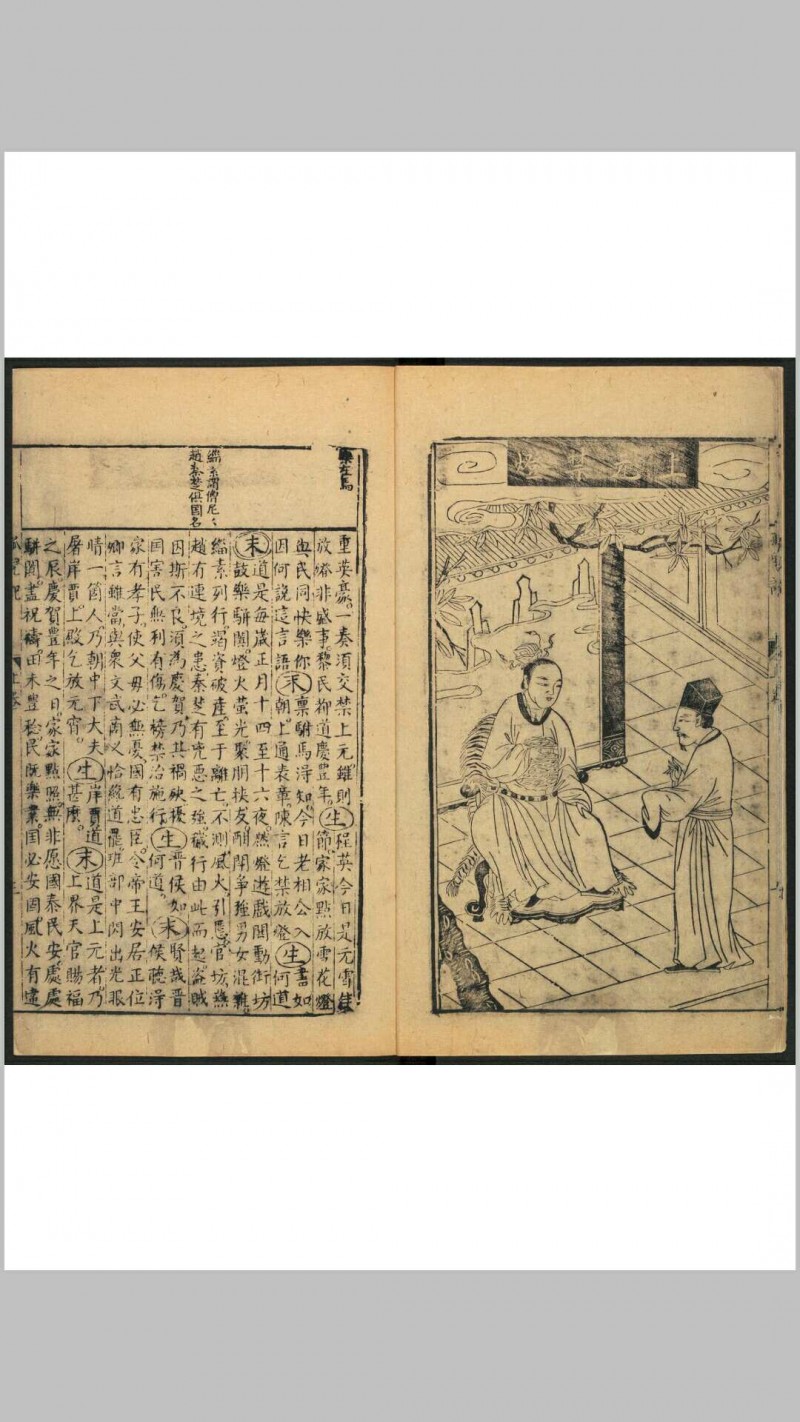 上元禁燈
樂在馬
緇素謂僧尼々
趙秦楚俱國名
重英豪。一奏須交禁上元。雖則 生 程英今日是元霄佳
放燈非盛事。黎民抑道慶豐年。節家家點放雪花燈
與民同快樂你 末 稟駙馬淂知今日老相公入 生 書如
因何說這言語 朝上通表章。陳言乞禁放燈 何道
末 道是每歲正月十四至十六夜。然燈遊戲閙動街坊
鼓樂駢闐。燈火螢光。聚朋挾友。酣閙爭強。男女混雜。
緇素列行。竭資破產。至于離亡。不測風火。引惹官坊。燕
趙有連境之患。秦楚有兇惡之強。穢行由此而起。盜賊
因斯不良。須為慶賀。乃其禍殃。擾 生 晉侯如 末 賢哉晉
国害民無利有傷。乞榜禁治施行 何道。侯聽淂
家有孝子。使父母必無憂。國有忠臣。令帝王安居正位
卿言雖當與衆文武商义。恰纔道罷。班部中閃出光眼
睛一箇人。乃朝中下大夫 生 岸賈道 末 道是上元者。乃
屠岸賈。上殿乞放元宵。甚麽。上界天官賜福
之辰。慶賀豐年之日。家家點照。無非愿國泰民安。處處
駢闐。盡祝禱田禾豐稔。民既樂業。国必安固。風火有違
孤兒記 上卷